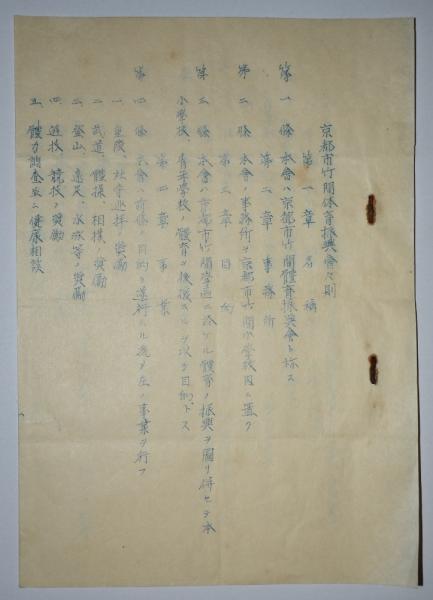 京都市竹間体育振興會々則
第一章 名稱
第一條 本會ハ京都市竹間體育振興會ト称ス
第二章 事務所
第二條 本會ノ事務所ヲ京都市竹間小學校内ニ置ク
第三章 目的
第三條 本會ハ京都市竹間學區ニ於ケル體育ノ振興ヲ圖リ併セテ本
小學校、青年學校ノ體育ヲ後援スルヲ以テ目的トス
第四章 事業
第四條 本會ハ前條ノ目的ヲ遂行スル為メ左ノ事業ヲ行フ
一、皇陵、社寺巡拝ノ奨勵
二、武道、體操、相撲ノ奨勵
三、登山、遠足、水泳等ノ奨勵
四、遊技、競技ノ奨勵
五、體力調査並ニ健康相談